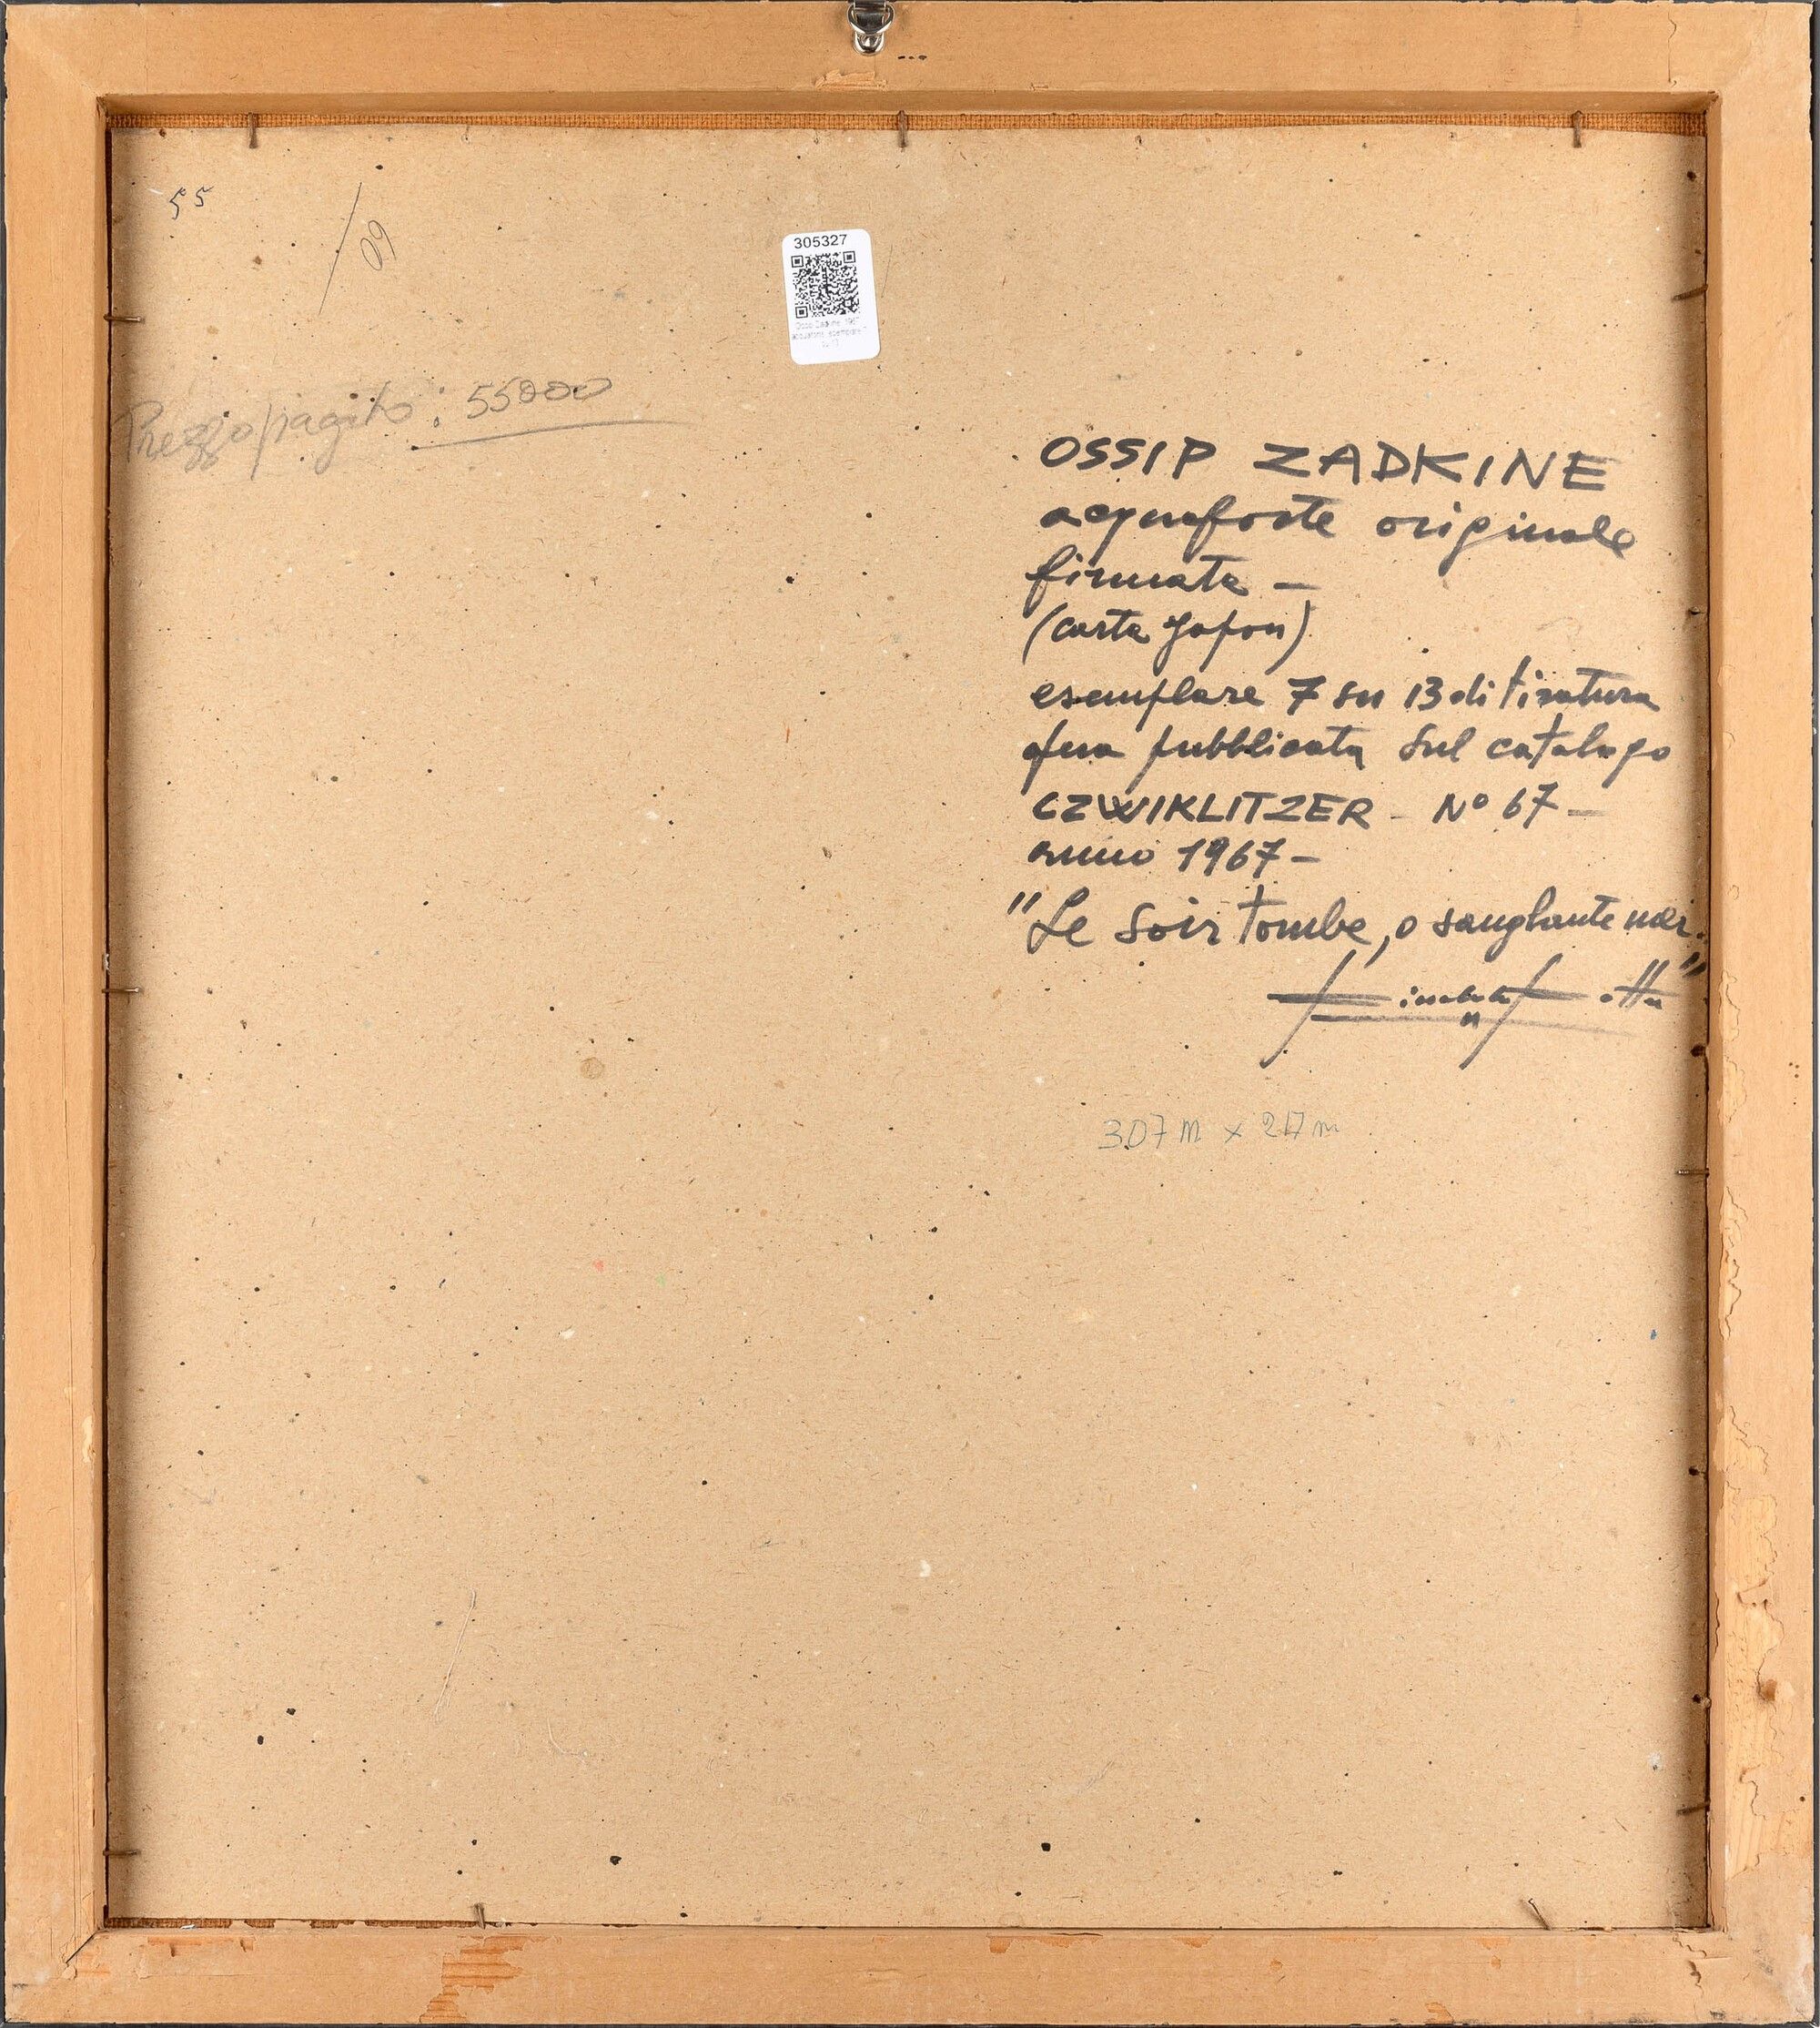 55
60
305327
Prezzo pagato: 55000
OSSIP ZADKINE
acquaforte originale
firmata –
(carta Japon)
esemplare 7 su 13 di tiratura
opera pubblicata sul catalogo
CZWIKLITZER – N° 67 –
anno 1967 –
"Le soir tombe, o sanglante mer."
307 m x 217 m